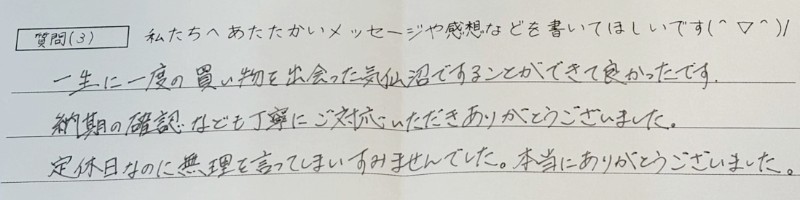 質問(3) 私たちへあたたかいメッセージや感想などを書いてほしいです(^▽^)/
一生に一度の買い物を出会った気仙沼ですることができて良かったです.
納期の確認なども丁寧にご対応いただきありがとうございました。
定休日なのに無理を言ってしまいすみませんでした。本当にありがとうございました。